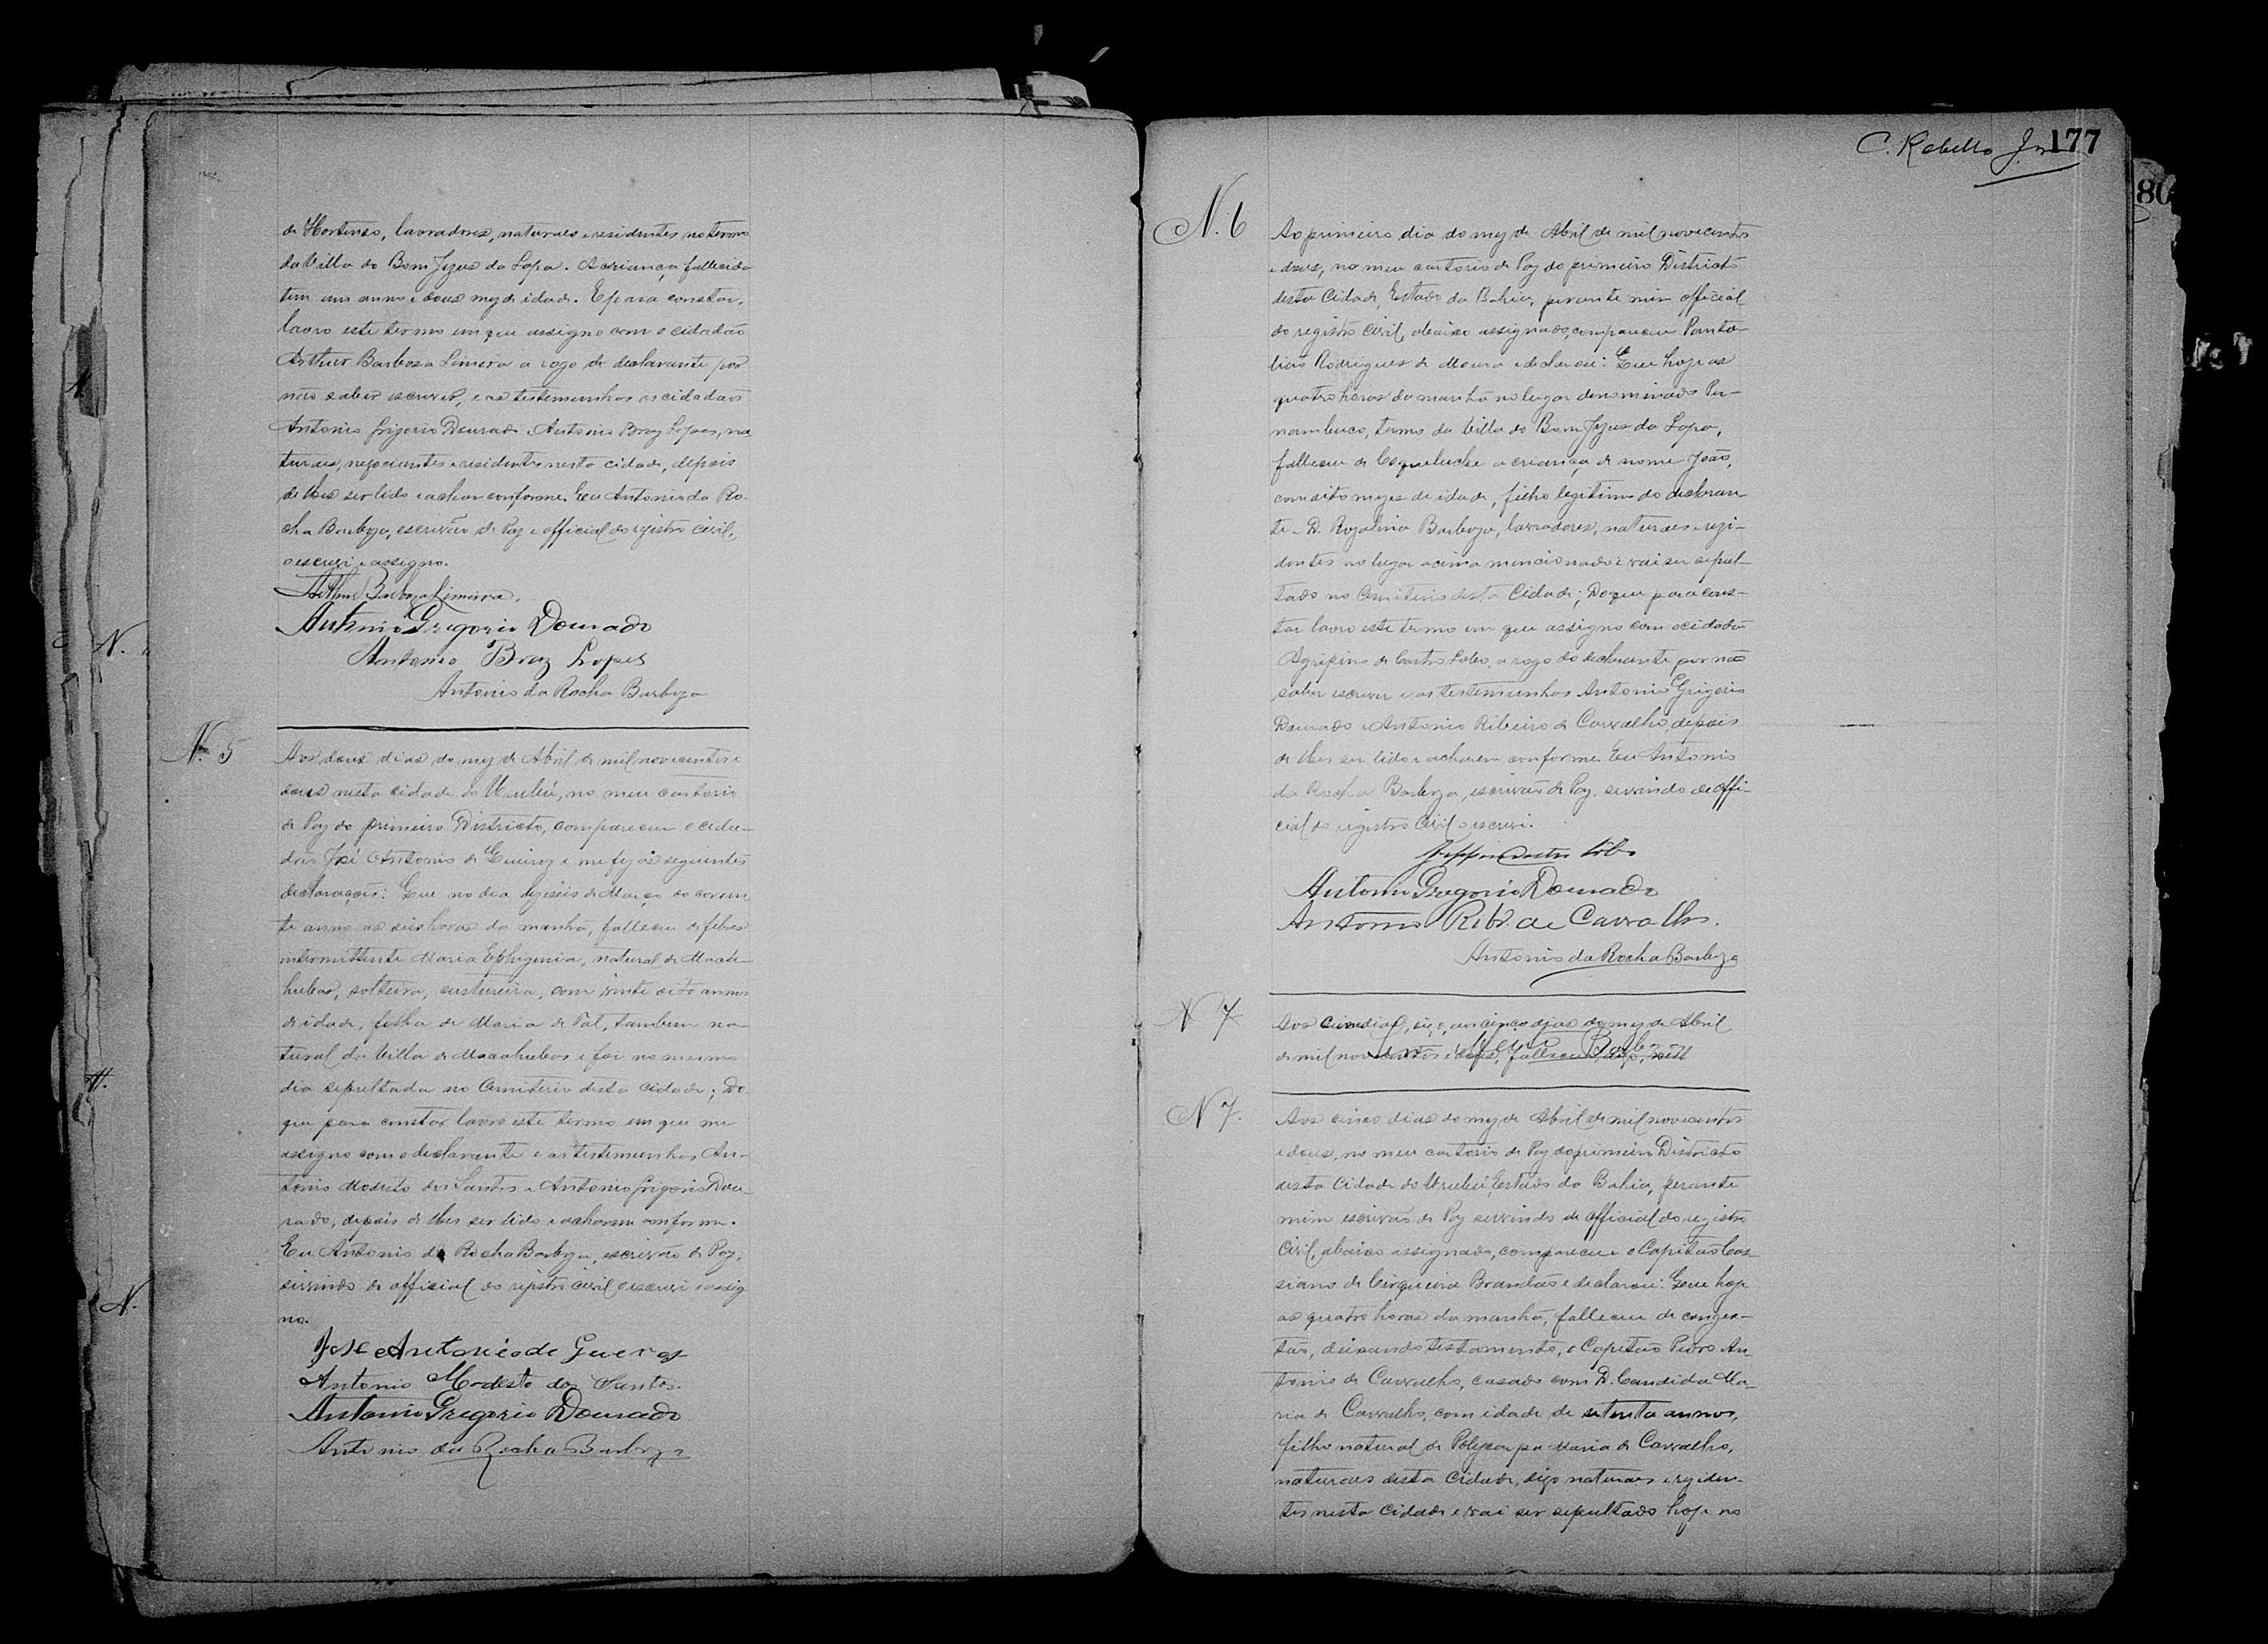 de Hortencio, lavradores, naturaes e residentes no termo
da Villa do Bom Jezus da Lapa. A criança fallecida
tem um anno e dous mez de idade. E para constar,
lavro este termo em que assigno com o cidadão
Arthur Barboza Limeira a rogo do declarante por
não saber escrever, e as testemunhas os cidadãos
Antonio Grigorio Dourado e Antonio Braz Lopes, na
turaes, negociantes e residentes nesta cidade, depois
de lhes ser lido e achar conforme. Eu Antonio da Ro-
cha Barboza, escrivão de Paz e official do registro civil,
o escrevi e assigno.
Arthur Barboza Limeira.
Antonio Gregorio Dourado
Antonio Braz Lopes
Antonio da Rocha Barboza
N. 5
Aos dous dias do mez de Abril de mil novecentos e
dous nesta cidade do Urubú, no meu cartorio
de Paz do primeiro Districto, compareceu o cida-
dão José Antonio de Queiroz e me fez as seguintes
declarações: Que no dia dezeseis de Março do corren
te anno as seis horas da manhã, falleceu de febres
intermittente Maria Ephigenia, natural de Macá-
hubas, solteira, custureira, com vinte oito annos
de idade, filha de Maria de Tal, tambem na-
tural da Villa de Macahubas e foi no mesmo
dia sepultada no Cemiterio desta cidade; Do
que para constar lavro este termo em que me
assigno com o declarante e as testemunhas An-
tonio Modesto dos Santos e Antonio Grigorio Dou-
rado, depois de lhes ser lido e acharem conforme.
Eu Antonio da Rocha Barboza, escrivão de Paz,
servindo de official do registro civil o escrevi e assig
no.
José Antonio de Queroz
Antonio Modesto dos Santos.
Antonio Gregorio Dourado
Antonio da Rocha Barboza
C. Rabello Jor 177
80
N. 6
Ao primeiro dia do mez de Abril de mil novecentos
e dous, no meu cartorio de Paz do primeiro Districto
desta Cidade, Estado da Bahia, perante mim official
do registro Civil, abaixo assignado, compareceu Panta-
lião Rodrigues de Moura e declarou: Que hoje as
quatro horas da manhã no lugar denominado Per-
nambuco, termo da Villa do Bom Jezus da Lapa,
falleceu de Coqueluche a criança de nome João,
com oito mezes de idade, filho legitimo do declaran
te e D. Rozalina Barboza, lavradores, naturaes e rezi-
dentes no lugar acima mencionado e vai ser sepul-
tado no Cemiterio desta Cidade; Do que para cons-
tar lavro este termo em que assigno com o cidadão
Agripino de Castro Lobo, a rogo do declarante por não
saber escrever e as testemunhas Antonio Grigorio
Dourado e Antonio Ribeiro de Carvalho, depois
de lhes ser lido e acharem conforme. Eu Antonio
da Rocha Barboza, escrivão de Paz, servindo de offi-
cial do registro Civil o escrevi.
Castro Lobo
Antonio Gregorio Dourado
Antonio Ribro de Carvalho.
Antonio da Rocha Barboza
N 7
Aos digo, aos cinco dias do mez de Abril
de mil novecentos e dous, falleceu digo, nest
N 7.
Aos cinco dias do mez de Abril de mil novecentos
e dous, no meu cartorio de Paz do primeiro Districto
desta Cidade do Urubú, Estado da Bahia, perante
mim escrivão de Paz servindo de official do registro
Civil, abaixo assignado, compareceu o Capitão Cas-
siano de Cirqueira Brandão e declarou: Que hoje
as quatro horas da manhã, falleceu de conges-
tão, deixando testamento, o Capitão Pedro An
tonio de Carvalho, casado com D. Candida Ma-
ria de Carvalho, com idade de setenta annos,
filho natural de Polycarpa Maria de Carvalho,
naturaes desta Cidade, digo naturaes e reziden-
tes nesta Cidade e vai ser sepultado hoje no